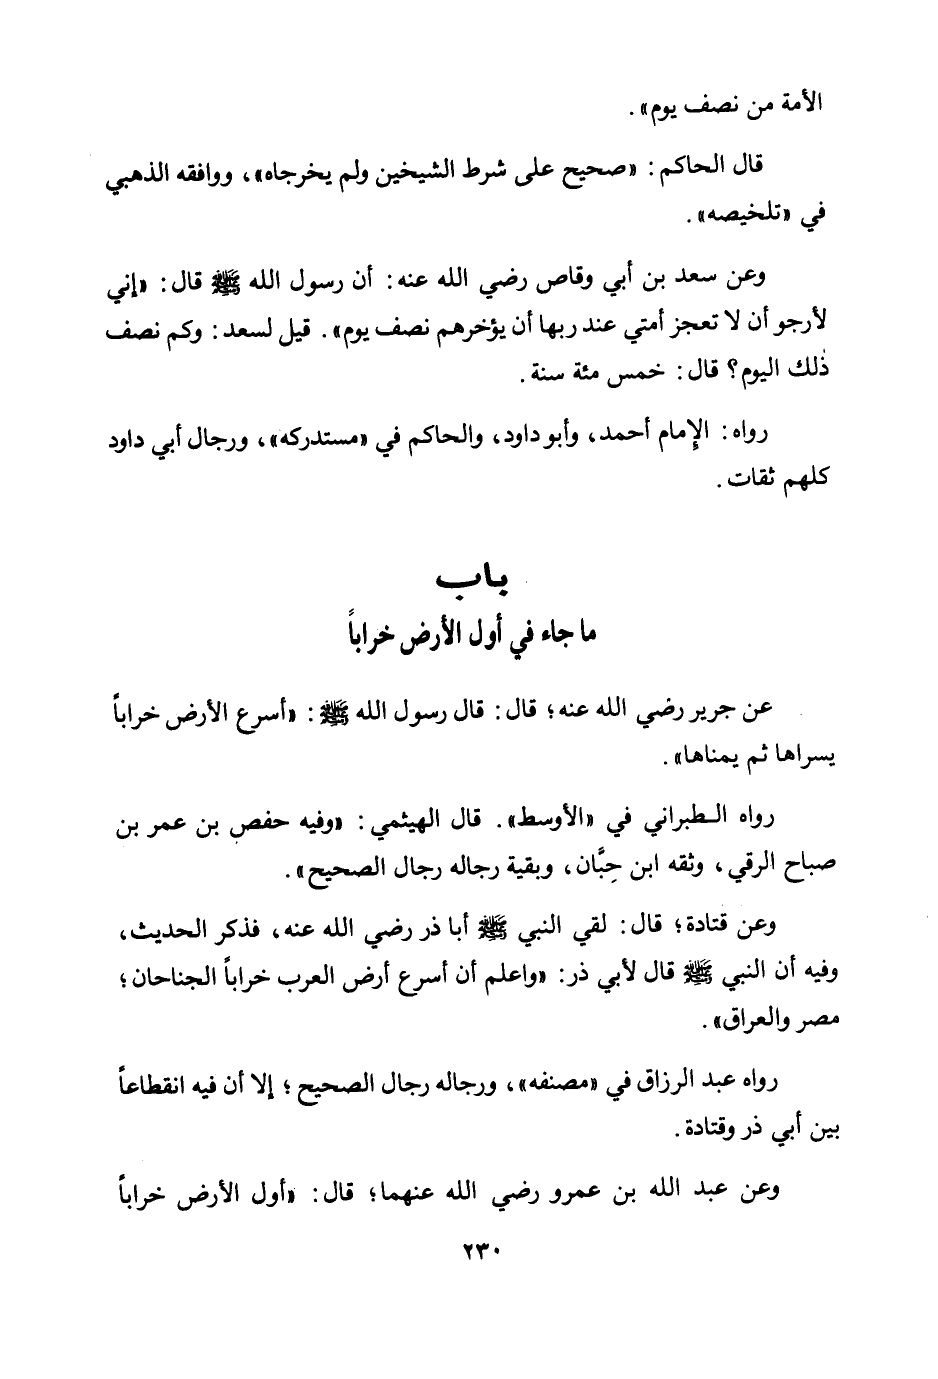 الأمة من نصف يوم».
قال الحاكم: «صحيح على شرط الشيخين ولم يخرجاه»، ووافقه الذهبي
في «تلخيصه».
وعن سعد بن أبي وقاص رضي الله عنه: أن رسول الله ﷺ قال: «إني
لأرجو أن لا تعجز أمتي عند ربها أن يؤخرهم نصف يوم». قيل لسعد: وكم نصف
ذٰلك اليوم؟ قال: خمس مئة سنة.
رواه: الإمام أحمد، وأبو داود، والحاكم في «مستدركه»، ورجال أبي داود
كلهم ثقات.
باب
ما جاء في أول الأرض خراباً
عن جرير رضي الله عنه؛ قال: قال رسول الله ﷺ: «أسرع الأرض خراباً
يسراها ثم يمناها».
رواه الطبراني في «الأوسط». قال الهيثمي: «وفيه حفصِ بن عمر بن
صباح الرقي، وثقه ابن حِبَّان، وبقية رجاله رجال الصحيح».
وعن قتادة؛ قال: لقي النبي ﷺ أبا ذر رضي الله عنه، فذكر الحديث،
وفيه أن النبي ﷺ قال لأبي ذر: «واعلم أن أسرع أرض العرب خراباً الجناحان؛
مصر والعراق».
رواه عبد الرزاق في «مصنفه»، ورجاله رجال الصحيح؛ إلا أن فيه انقطاعاً
بين أبي ذر وقتادة.
وعن عبد الله بن عمرو رضي الله عنهما؛ قال: «أول الأرض خراباً
٢٣٠